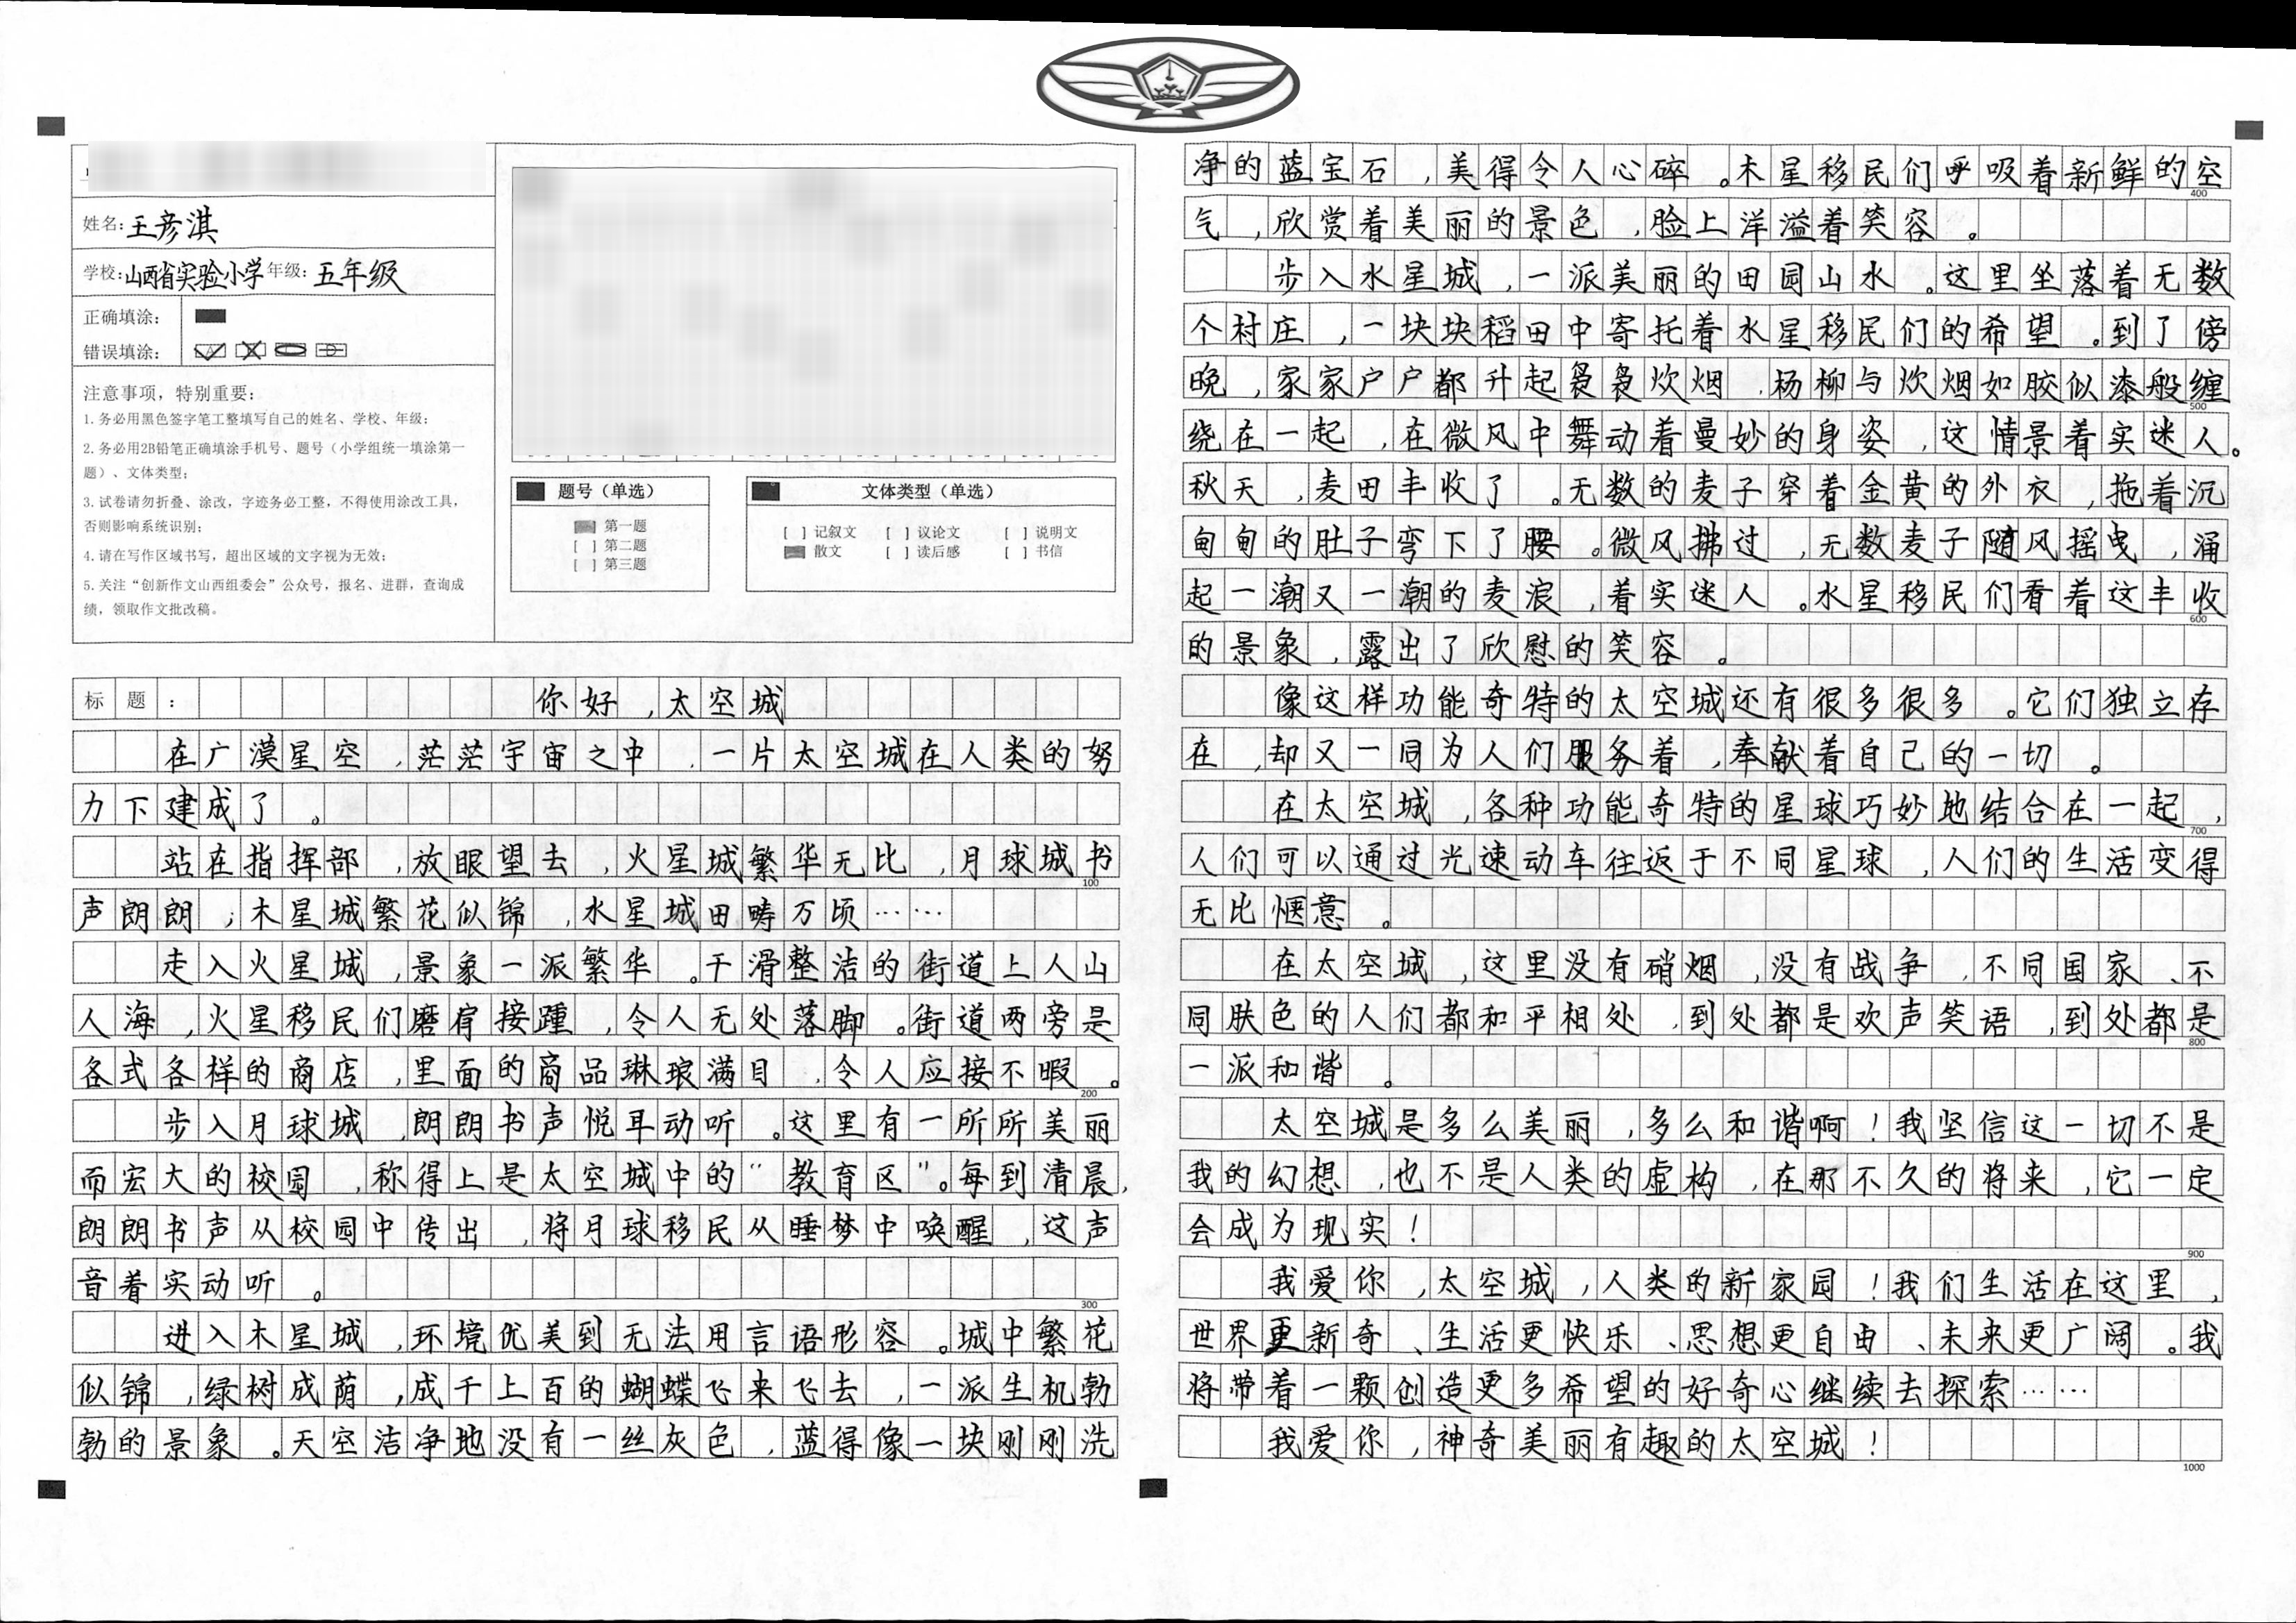 姓名：王彦淇
学校：山西省实验小学 年级：五年级
正确填涂：
错误填涂：
注意事项，特别重要：
1. 务必用黑色签字笔工整填写自己的姓名、学校、年级；
2. 务必用2B铅笔正确填涂手机号、题号（小学组统一填涂第一
题）、文体类型；
3. 试卷请勿折叠、涂改，字迹务必工整，不得使用涂改工具，
否则影响系统识别；
4. 请在写作区域书写，超出区域的文字视为无效；
5. 关注“创新作文山西组委会”公众号，报名、进群，查询成
绩，领取作文批改稿。
题号（单选）
第一题
[ ] 第二题
[ ] 第三题
文体类型（单选）
[ ] 记叙文 [ ] 议论文 [ ] 说明文
散文 [ ] 读后感 [ ] 书信
标题：你好，太空城
在广漠星空，茫茫宇宙之中，一片太空城在人类的努
力下建成了。
站在指挥部，放眼望去，火星城繁华无比，月球城书
100
声朗朗；木星城繁花似锦，水星城田畴万顷……
走入火星城，景象一派繁华。干滑整洁的街道上人山
人海，火星移民们磨肩接踵，令人无处落脚。街道两旁是
各式各样的商店，里面的商品琳琅满目，令人应接不暇。
200
步入月球城，朗朗书声悦耳动听。这里有一所所美丽
而宏大的校园，称得上是太空城中的“教育区”。每到清晨，
朗朗书声从校园中传出，将月球移民从睡梦中唤醒，这声
音着实动听。
300
进入木星城，环境优美到无法用言语形容。城中繁花
似锦，绿树成荫，成千上百的蝴蝶飞来飞去，一派生机勃
勃的景象。天空洁净地没有一丝灰色，蓝得像一块刚刚洗
净的蓝宝石，美得令人心碎。木星移民们呼吸着新鲜的空
400
气，欣赏着美丽的景色，脸上洋溢着笑容。
步入水星城，一派美丽的田园山水。这里坐落着无数
个村庄，一块块稻田中寄托着水星移民们的希望。到了傍
晚，家家户户都升起袅袅炊烟，杨柳与炊烟如胶似漆般缠
500
绕在一起，在微风中舞动着曼妙的身姿，这情景着实迷人。
秋天，麦田丰收了。无数的麦子穿着金黄的外衣，拖着沉
甸甸的肚子弯下了腰。微风拂过，无数麦子随风摇曳，涌
起一潮又一潮的麦浪，着实迷人。水星移民们看着这丰收
600
的景象，露出了欣慰的笑容。
像这样功能奇特的太空城还有很多很多。它们独立存
在，却又一同为人们服务着，奉献着自己的一切。
在太空城，各种功能奇特的星球巧妙地结合在一起，
700
人们可以通过光速动车往返于不同星球，人们的生活变得
无比惬意。
在太空城，这里没有硝烟，没有战争，不同国家、不
同肤色的人们都和平相处，到处都是欢声笑语，到处都是
800
一派和谐。
太空城是多么美丽，多么和谐啊！我坚信这一切不是
我的幻想，也不是人类的虚构，在那不久的将来，它一定
会成为现实！
900
我爱你，太空城，人类的新家园！我们生活在这里，
世界更新奇、生活更快乐、思想更自由、未来更广阔。我
将带着一颗创造更多希望的好奇心继续去探索……
我爱你，神奇美丽有趣的太空城！
1000